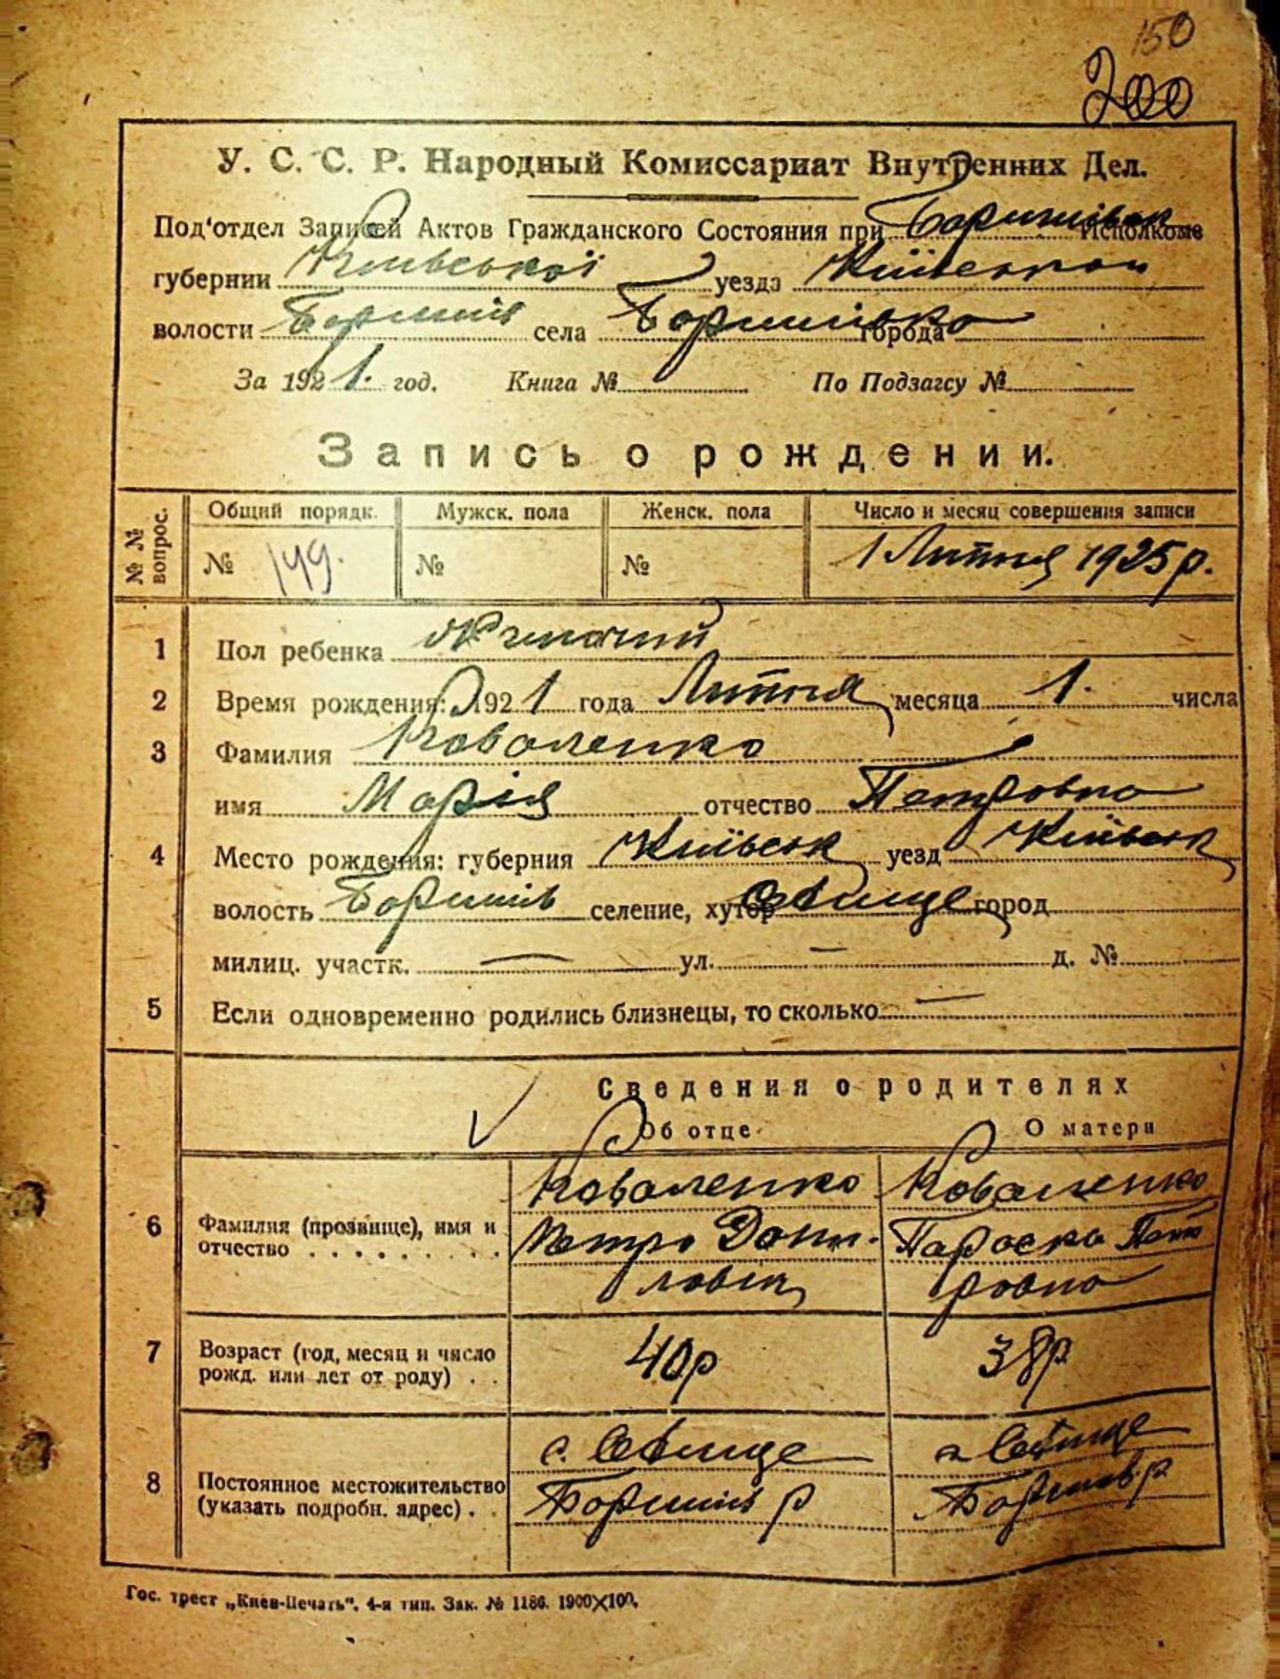 150
200
У. С. С. Р. Народный Комиссариат Внутренних Дел.
Под'отдел Записей Актов Гражданского Состояния при Исполкоме
губернии Київської уезда
волости села города
За 1921. год. Книга № По Подзагсу №
Запись о рождении.
№ № вопрос. Общий порядк. Мужск. пола Женск. пола Число и месяц совершения записи
№ 149. № № 1 Липня 1925 р.
1 Пол ребенка
2 Время рождения: 1921 года Липня месяца 1. числа
3 Фамилия Коваленко
имя Марія отчество Петровна
4 Место рождения: губерния Київськ уезд Київськ
волость селение, хутор город
милиц. участк. — ул. — д. №
5 Если одновременно родились близнецы, то сколько —
Сведения о родителях
Об отце О матери
6 Фамилия (прозвище), имя и отчество Коваленко Коваленко
Петро Дани- Параска Пет
лович ровна
7 Возраст (год, месяц и число рожд. или лет от роду) 40р 38р
8 Постоянное местожительство (указать подробн. адрес)
Гос. трест „Киев-Печать". 4-я тип. Зак. № 1186. 1900×100.